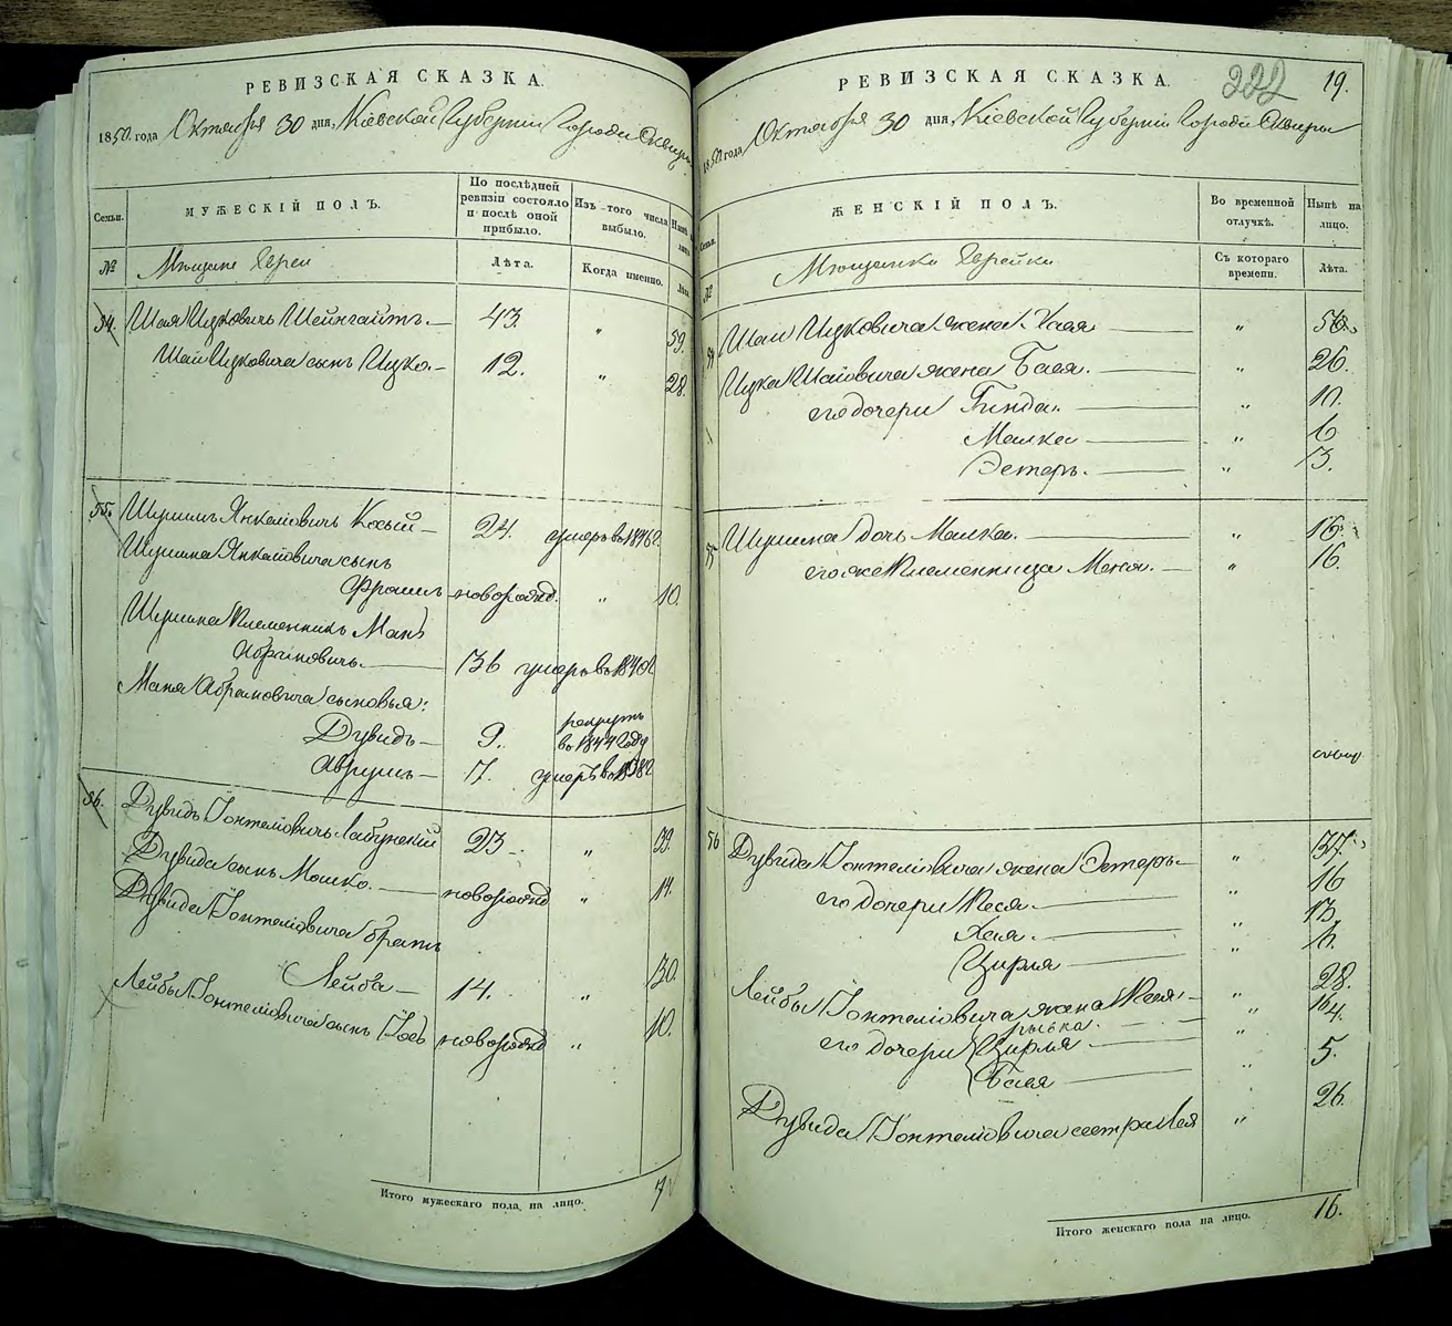 РЕВИЗСКАЯ СКАЗКА.
1850. года Октября 30 дня, Кіевской Губерніи Города Сквиры
Семьи.
МУЖЕСКІЙ ПОЛЪ.
По послѣдней ревизіи состояло и послѣ оной прибыло.
Изъ того числа выбыло.
Нынѣ на лицо.
№
Мещане Евреи
Лѣта.
Когда именно.
Лѣта
54. Шая Ицковичь Шейнгайтъ. 43. " 59.
Шаи Ицковича сынъ Ицко. 12. " 28.
55. Янкелiовичь 24. умеръ в 1846 г.
Янкелiовича сынъ
Фроимъ новорожд. " 10.
племенникъ Манъ
Абрамовичь. 36 умеръ в 1840 г.
Маня Абрамовича сыновья:
Дувидъ 9. рекрутъ
в 1844 году
Аврумъ 7. умеръ в 1838 г.
56. Дувидъ Іонтелiовичь Лабунскій 23. " 39.
Дувида сынъ Мошко. новорожд " 14.
Дувида Іонтелiовича братъ
Лейба 14. " 30.
Лейбы Іонтелiовича сынъ Іосъ новорожд " 10.
Итого мужескаго пола на лицо. 7
РЕВИЗСКАЯ СКАЗКА.
222 19.
1850 года Октября 30 дня, Кіевской Губерніи Города Сквиры
Семьи.
ЖЕНСКІЙ ПОЛЪ.
Во временной отлучкѣ.
Нынѣ на лицо.
№
Мещанки Еврейки
Съ котораго времени.
Лѣта.
54 Шаи Ицковича жена Хая " 56.
Ицка Шаiовича жена Бася. " 26.
его дочери Гинда. " 10.
Малка " 6
Эстеръ. " 3.
55 дочь Малка. " 16.
его же племенница Меня. " 16.
56 Дувида Іонтелiовича жена Эстеръ " 37.
его дочери Песя. " 16
Хая. " 13.
Цирля "
Лейбы Іонтелiовича жена " 28.
Рывка. "
его дочери Цирля "
Бася " 5.
Дувида Іонтелiовича сестра Лея " 26.
Итого женскаго пола на лицо. 16.